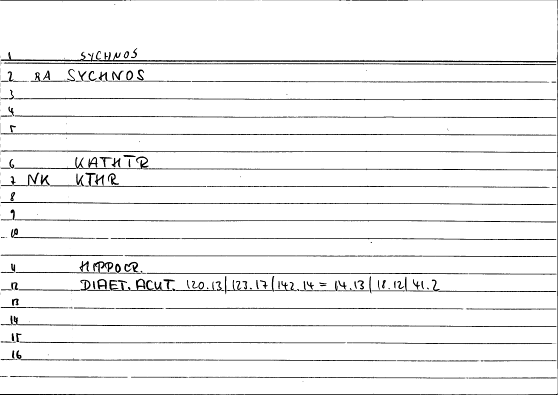 1 SYCHNOS
2 RA SYCHNOS
3
4
5
6 KATHTR
7 NK KTHR
8
9
10
11 HIPPOCR.
12 DIAET. ACUT. 120.13|123.17|142.14 = 14.13|18.12|41.2
13
14
15
16